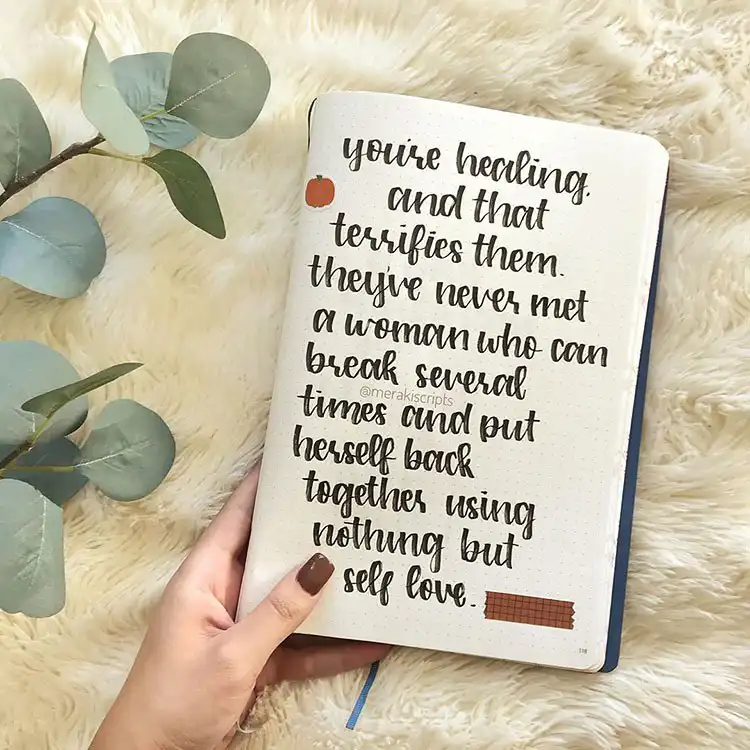 you're healing.
and that
terrifies them.
they've never met
a woman who can
break several
@merakiscripts
times and put
herself back
together using
nothing but
self love.
118